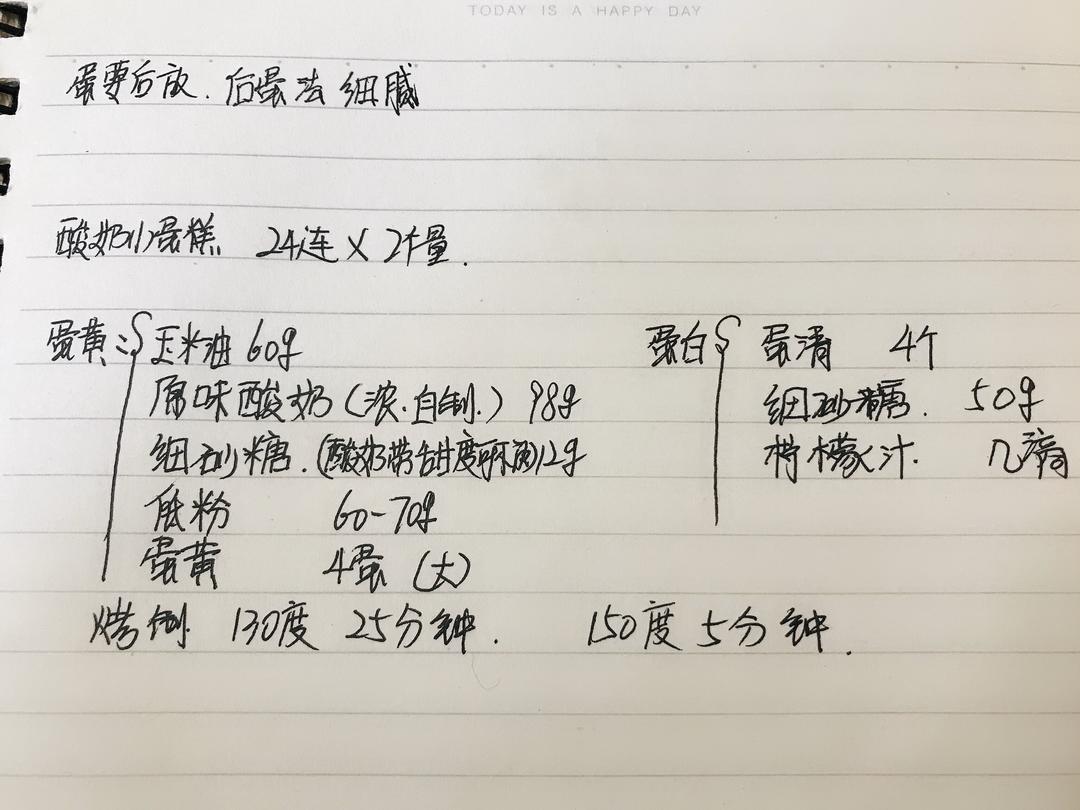 TODAY IS A HAPPY DAY
蛋要后放. 后蛋法 细腻
酸奶小蛋糕 24连 X 2个量.
蛋黄: { 玉米油 60g
原味酸奶 (浓.自制.) 98g
细砂糖. (酸奶带甜度可不调) 12g
低粉 60-70g
蛋黄 4蛋 (大)
蛋白 { 蛋清 4个
细砂糖. 50g
柠檬汁. 几滴
烤制 130度 25分钟. 150度 5分钟.